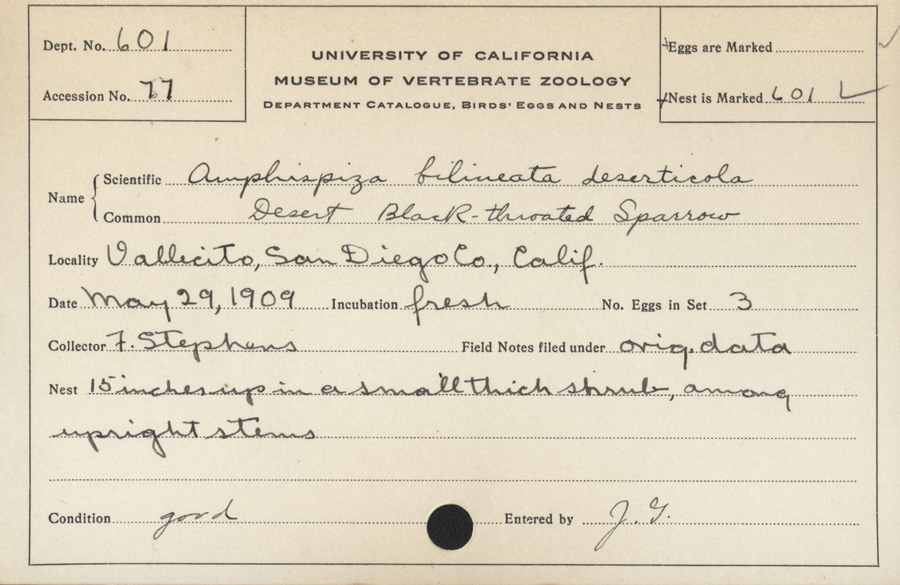 Dept. No. 601
Accession No. 77
UNIVERSITY OF CALIFORNIA
MUSEUM OF VERTEBRATE ZOOLOGY
DEPARTMENT CATALOGUE, BIRDS' EGGS AND NESTS
Eggs are Marked ✓
Nest is Marked 601 ✓
Name { Scientific Amphispiza bilineata deserticola
Common Desert Black-throated Sparrow
Locality Vallecito, San Diego Co., Calif.
Date May 29, 1909 Incubation fresh No. Eggs in Set 3
Collector F. Stephens Field Notes filed under orig. data
Nest 15 inches up in a small thick shrub, among
upright stems
Condition good Entered by J. G.